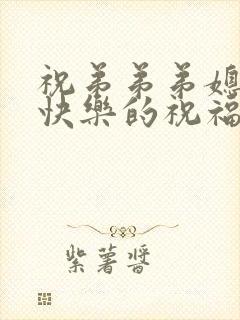 祝弟弟弟媳
快樂的祝福
紫薯醬